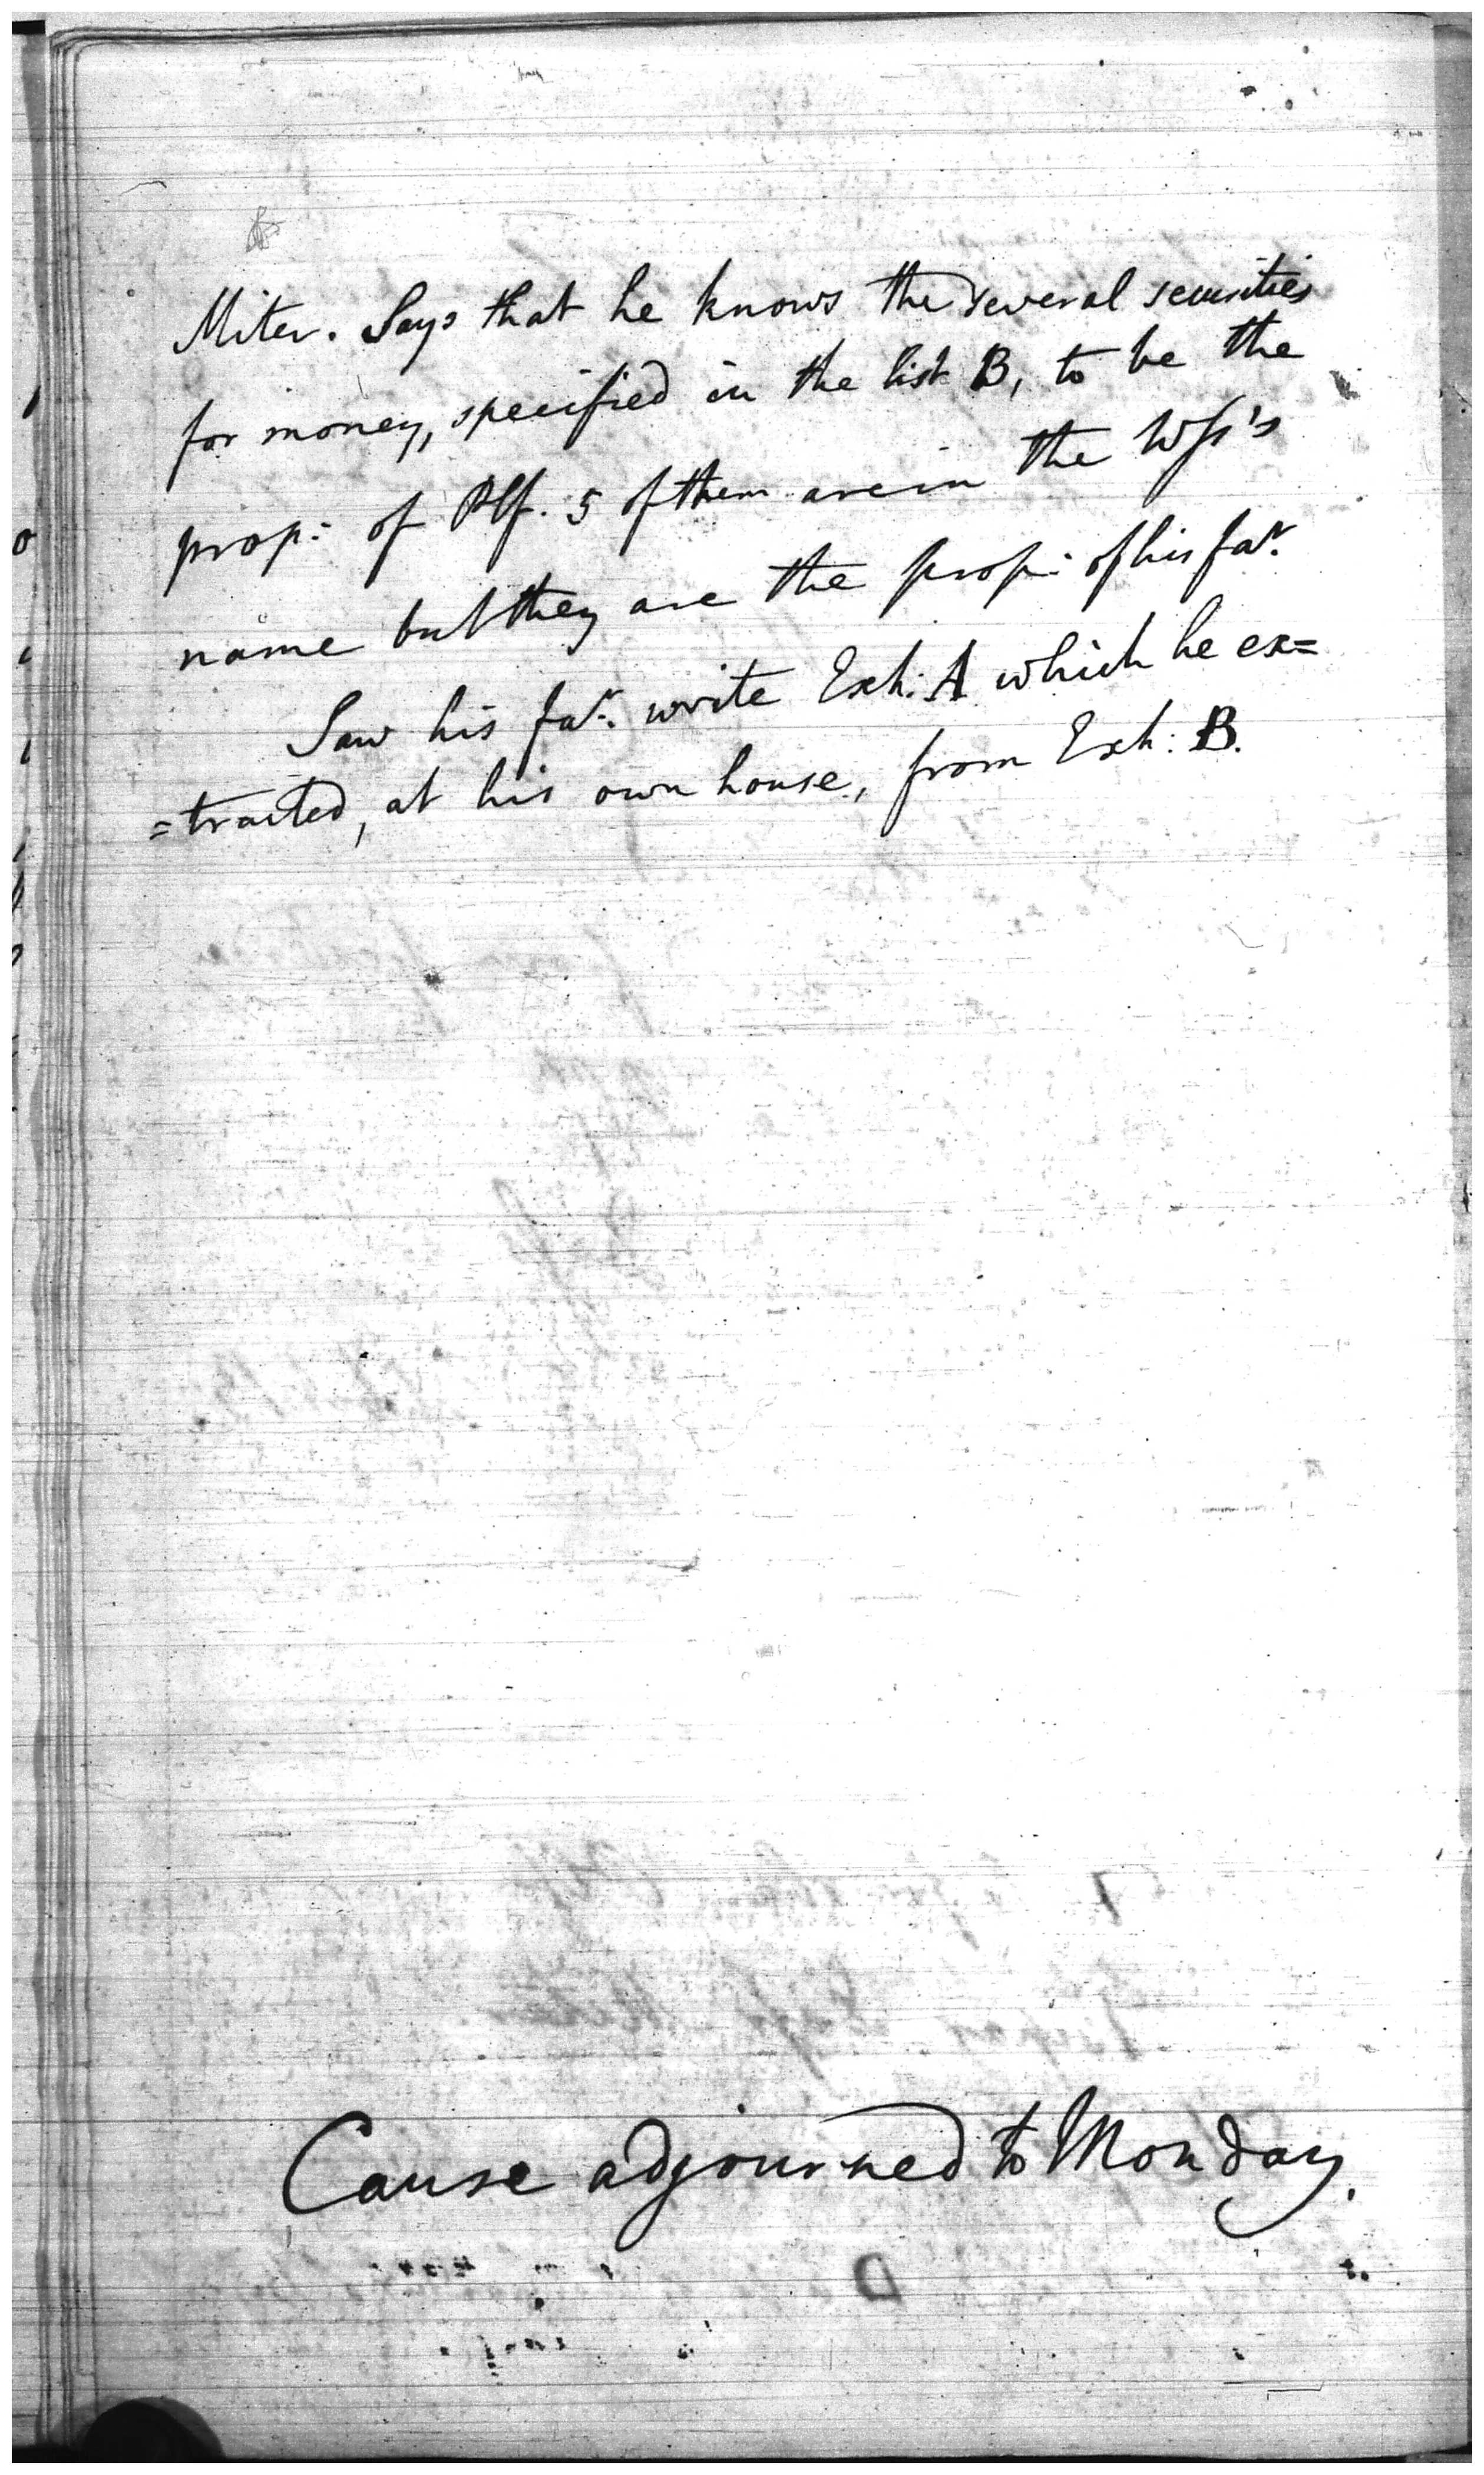 Miter. Says that he knows the several securities
for money, specified in the list B, to be the
prop: of Plf. 5 of them are in the Wss's
name but they are the prop: of his far.
Saw his far. write Exh: A which he ex=
=tracted, at his own house, from Exh: B.
Cause adjourned to Monday.